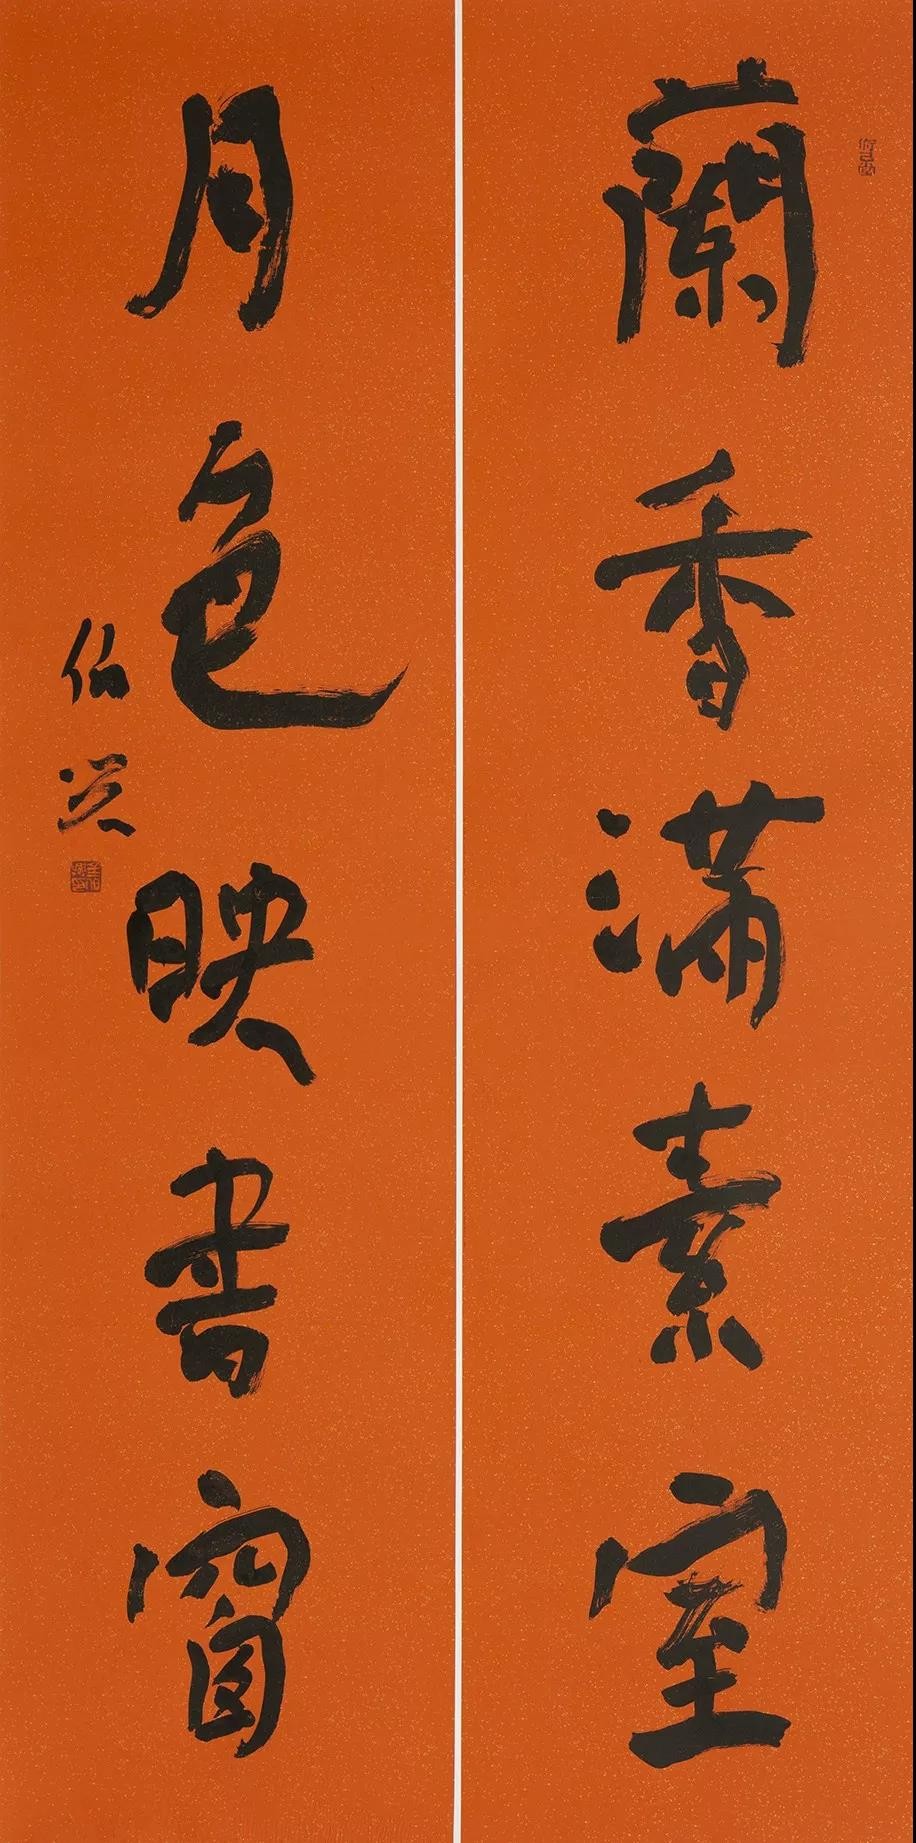 蘭香滿素室
月色映書窗
伯